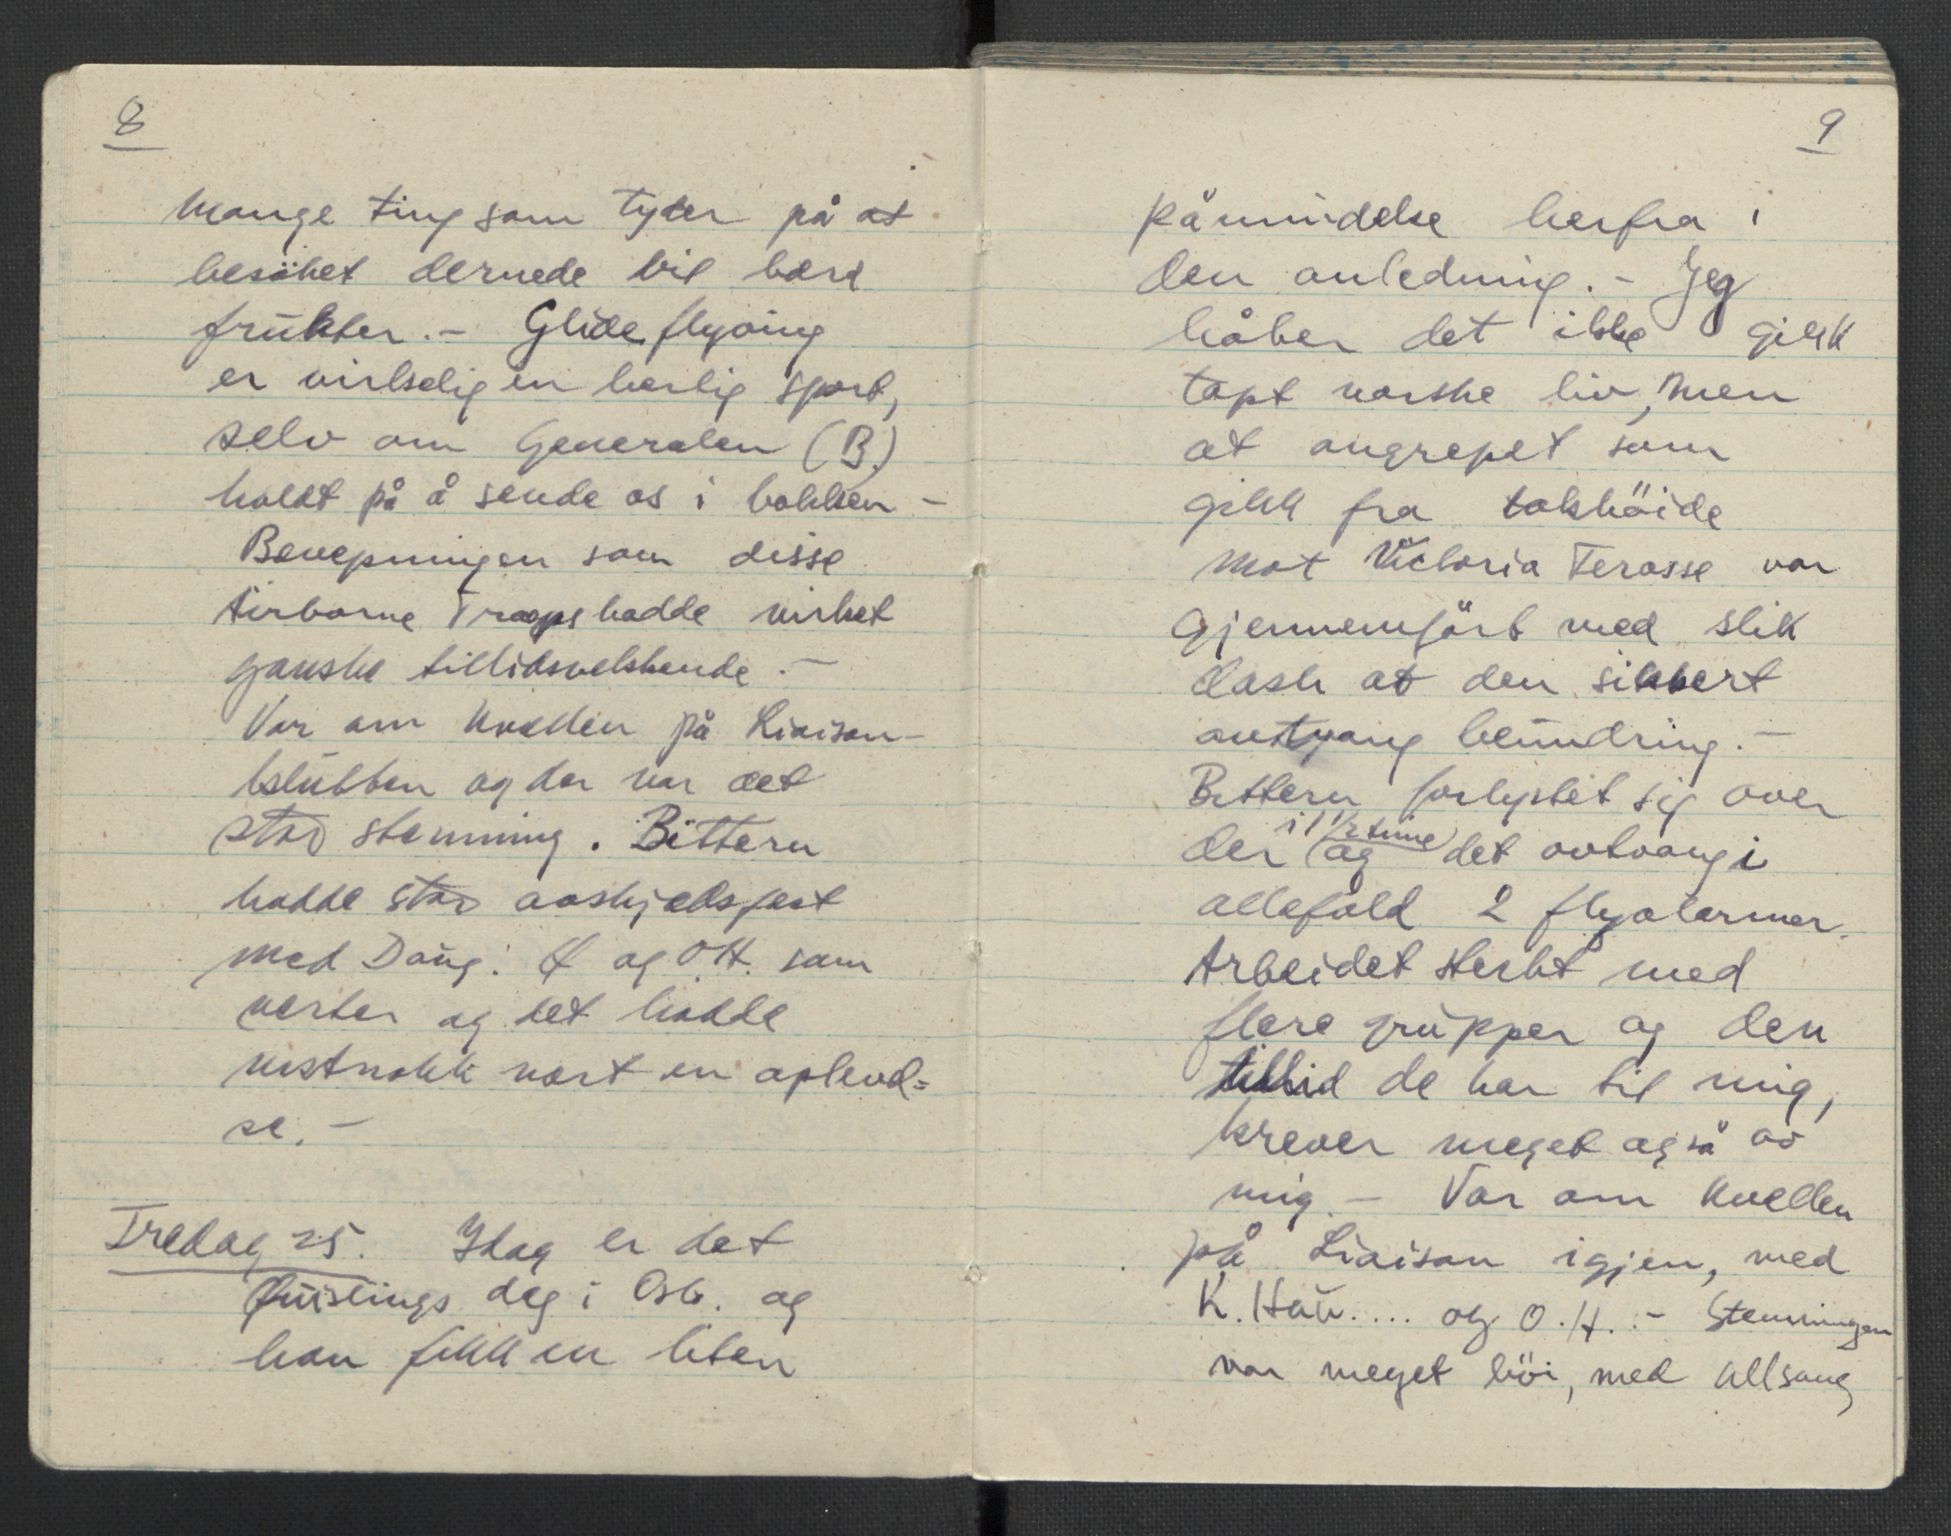 8
mange ting som tyder på at
besöket dernede vil bære
frukter. - Glideflyving
er virkelig en herlig sport,
selv om Generalen (B.)
holdt på å sende os i bakken -
Bevepningen som disse
Airborne Troops hadde virket
ganske tillidsvekkende. -
Var om kvelden på Liaison-
klubben og der var det
stor stemning. Bittern
hadde stor avskjedsfest
med Daug. Ø og O.H. som
verter og det hadde
vistnokk vært en oplevel=
se. -
Fredag 25. Idag er det
Quislings dag i Oslo. og
han fikk en liten
9
påminnelse herfra i
den anledning. - Jeg
håber det ikke gikk
tapt norske liv, men
at angrepet som
gikk fra takhöide
mot Victoria Terasse var
gjennemfört med slik
dash at den sikkert
avtvang beundring. -
Bittern forlystet sig over
der i 1 1/2 time og det avtvang i
allefald 2 flyalarmer.
Arbeidet sterkt med
flere grupper og den
tillid de har til mig,
krever meget også av
mig. - Var om kvellen
på Liaison igjen, med
K. Hau.... og O.H. - Stemningen
var meget höi, med allsang